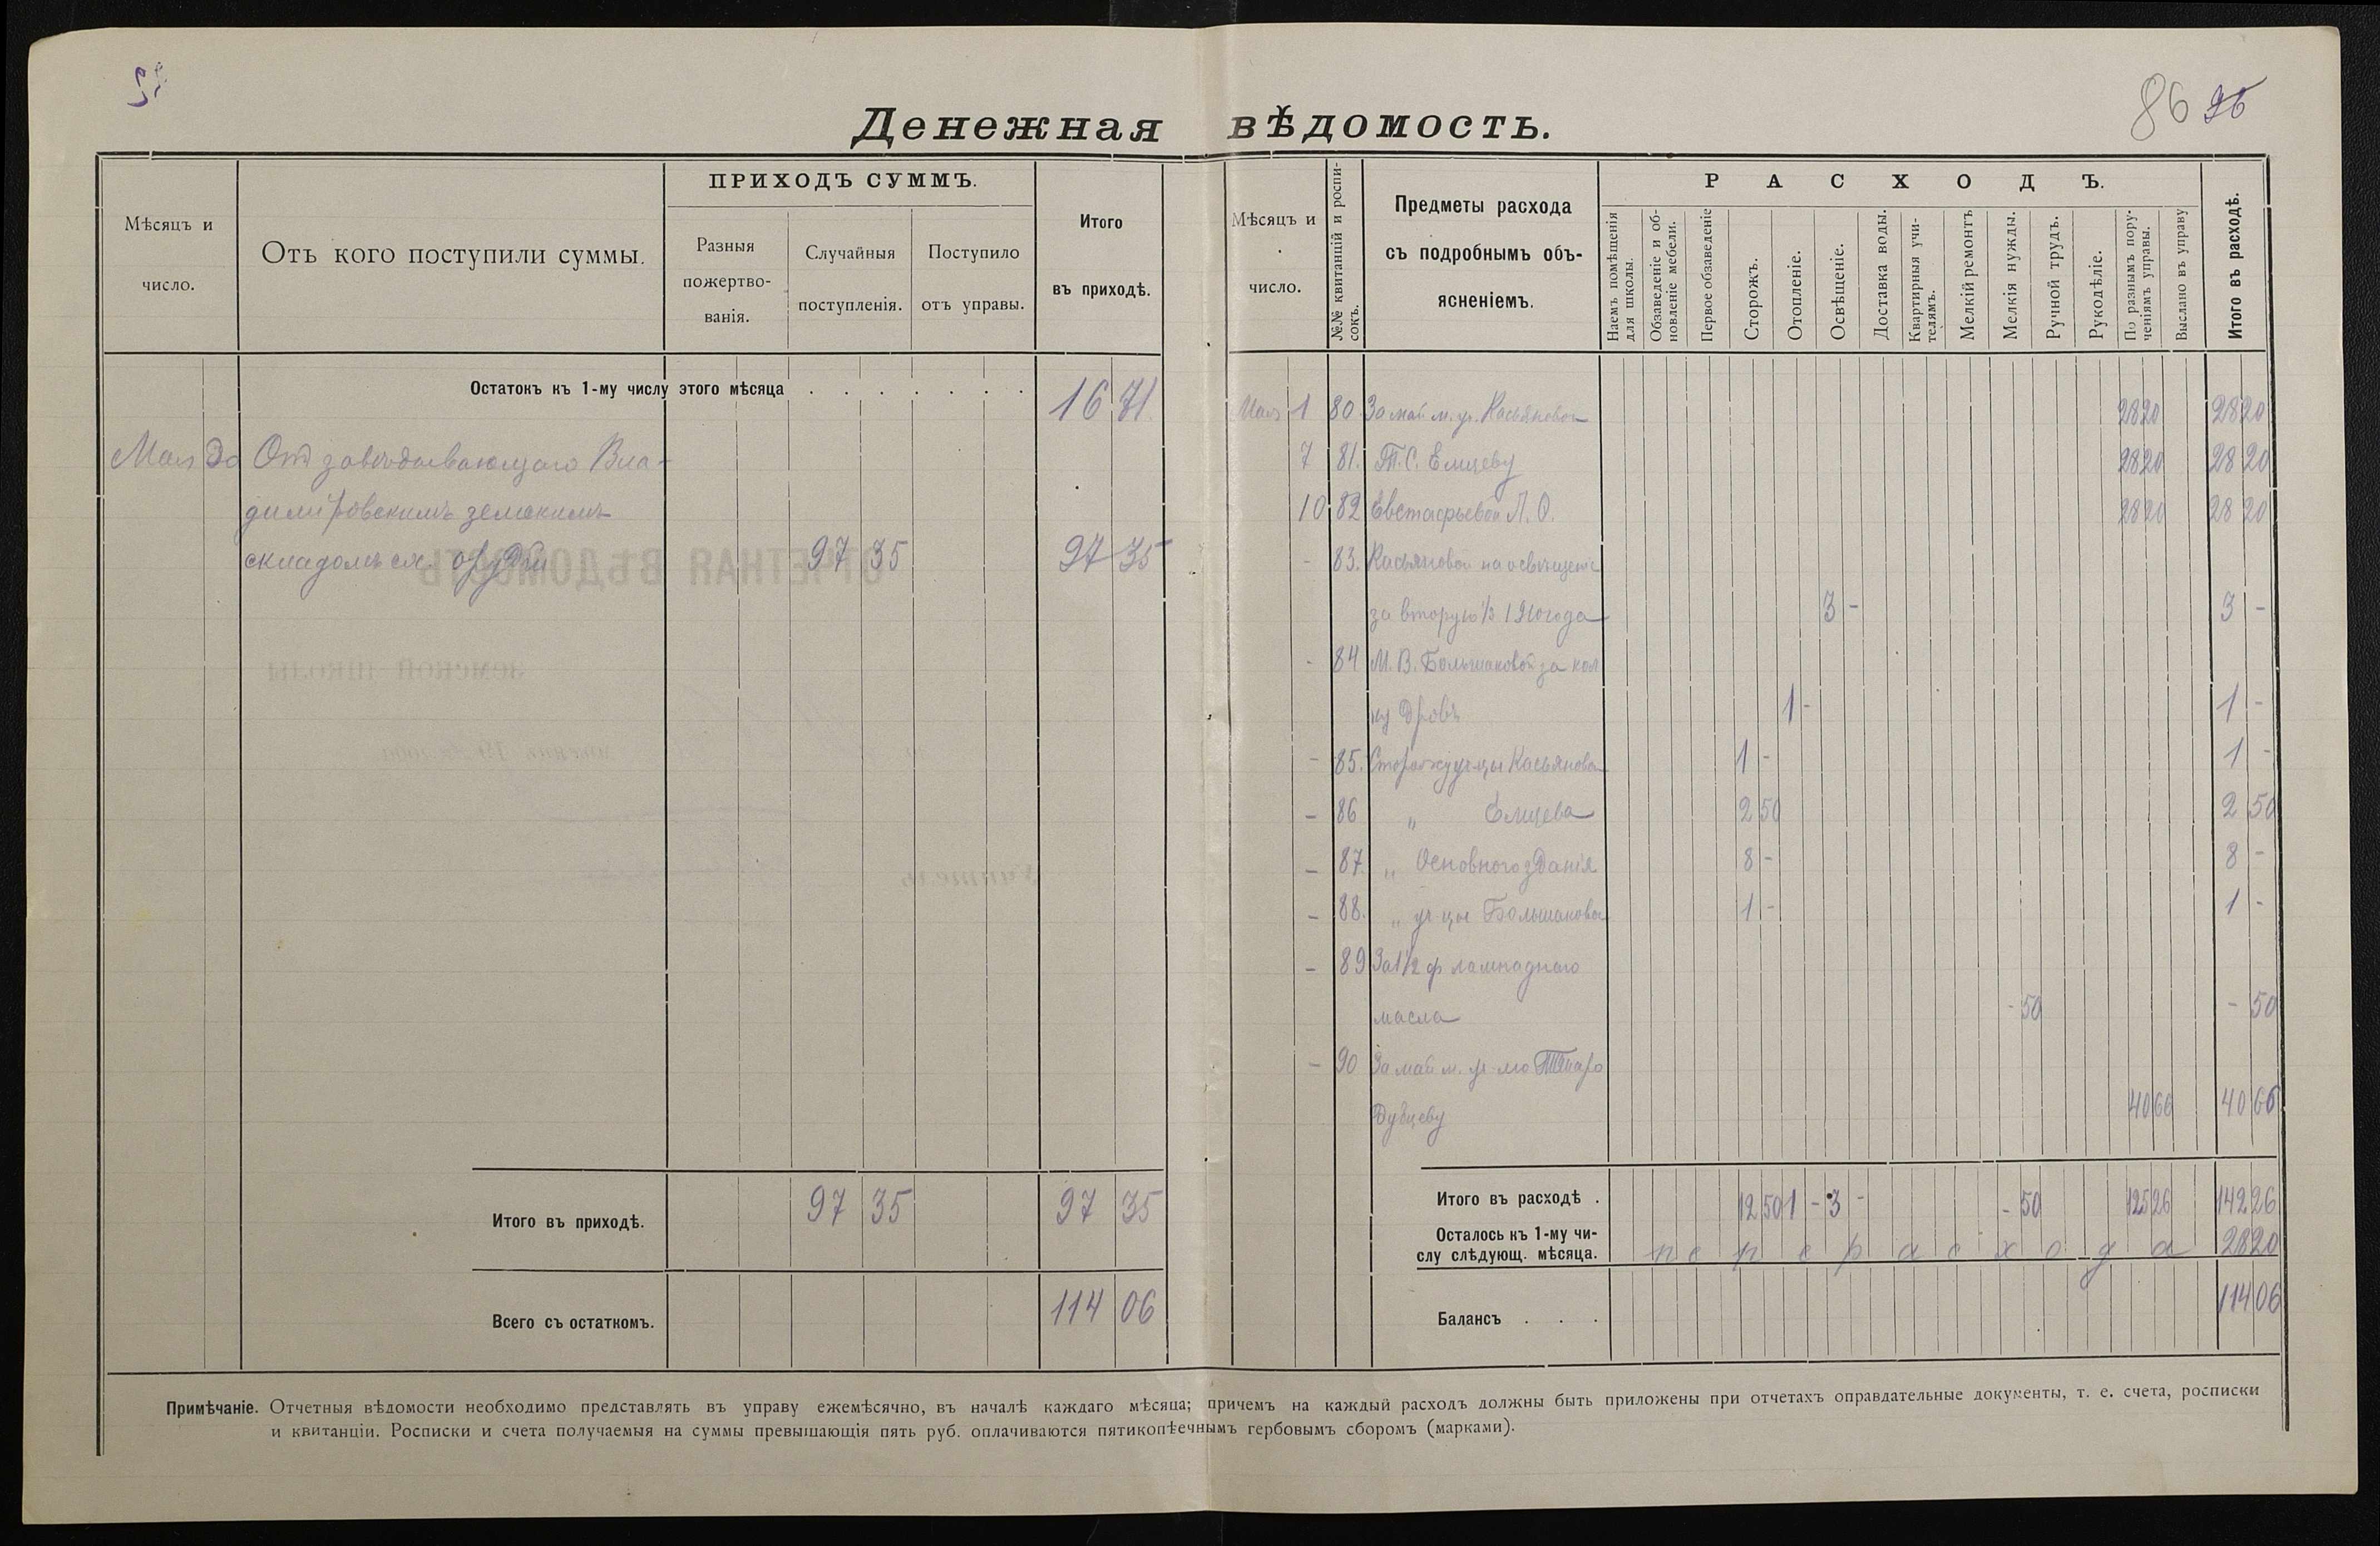 86 96
Денежная вѣдомость.
Мѣсяцъ и
число.
Отъ кого поступили суммы.
ПРИХОДЪ СУММЪ.
Разныя
пожертво-
ванія.
Случайныя
поступленія.
Поступило
отъ управы.
Итого
въ приходѣ.
Остатокъ къ 1-му числу этого мѣсяца . . . . . . .
16 71
Мая 30 От завѣдывающаго Вла-
димiровскимъ земскимъ
складомъ с.х. орудiй 97 35 97 35
Итого въ приходѣ. 97 35 97 35
Всего съ остаткомъ. 114 06
Мѣсяцъ и
число.
№№ квитанцій и роспи-
сокъ.
Предметы расхода
съ подробнымъ объ-
ясненіемъ.
РАСХОДЪ.
Наемъ помѣщенія
для школы.
Обзаведеніе и об-
новленіе мебели.
Первое обзаведеніе
Сторожъ.
Отопленіе.
Освѣщеніе.
Доставка воды.
Квартирныя учи-
телямъ.
Мелкій ремонтъ
Мелкія нужды.
Ручной трудъ.
Рукодѣліе.
По разнымъ пору-
ченіямъ управы.
Выслано въ управу
Итого въ расходѣ.
Мая 1 80 За май м. уч. Касьяновой 28 20 28 20
7 81. Т.С. Елцеву 28 20 28 20
10 82 Евстафьевой Л. О. 28 20 28 20
- 83. Касьяновой на освѣщенiе
за вторую 1/2 1910 года 3 - 3 -
- 84 М. В. Большаковой за кол
ку дровъ 1 - 1 -
- 85. Сторожу уч-цы Касьяновой 1 - 1 -
- 86 " Елцева 2 50 2 50
- 87. " Основного зданiя 8 - 8 -
- 88. " уч-цы Большаковой 1 - 1 -
- 89 За 1 1/2 ф лампаднаго
масла - 50 - 50
- 90 За май м. уч-лю
Дубцеву 40 66 40 66
Итого въ расходѣ . 12 50 1 - 3 - - 50 125 26 142 26
Осталось къ 1-му чи-
слу слѣдующ. мѣсяца. перерасхода 28 20
Балансъ . . . 114 06
Примѣчаніе. Отчетныя вѣдомости необходимо представлять въ управу ежемѣсячно, въ началѣ каждаго мѣсяца; причемъ на каждый расходъ должны быть приложены при отчетахъ оправдательные документы, т. е. счета, росписки
и квитанціи. Росписки и счета получаемыя на суммы превышающія пять руб. оплачиваются пятикопѣечнымъ гербовымъ сборомъ (марками).